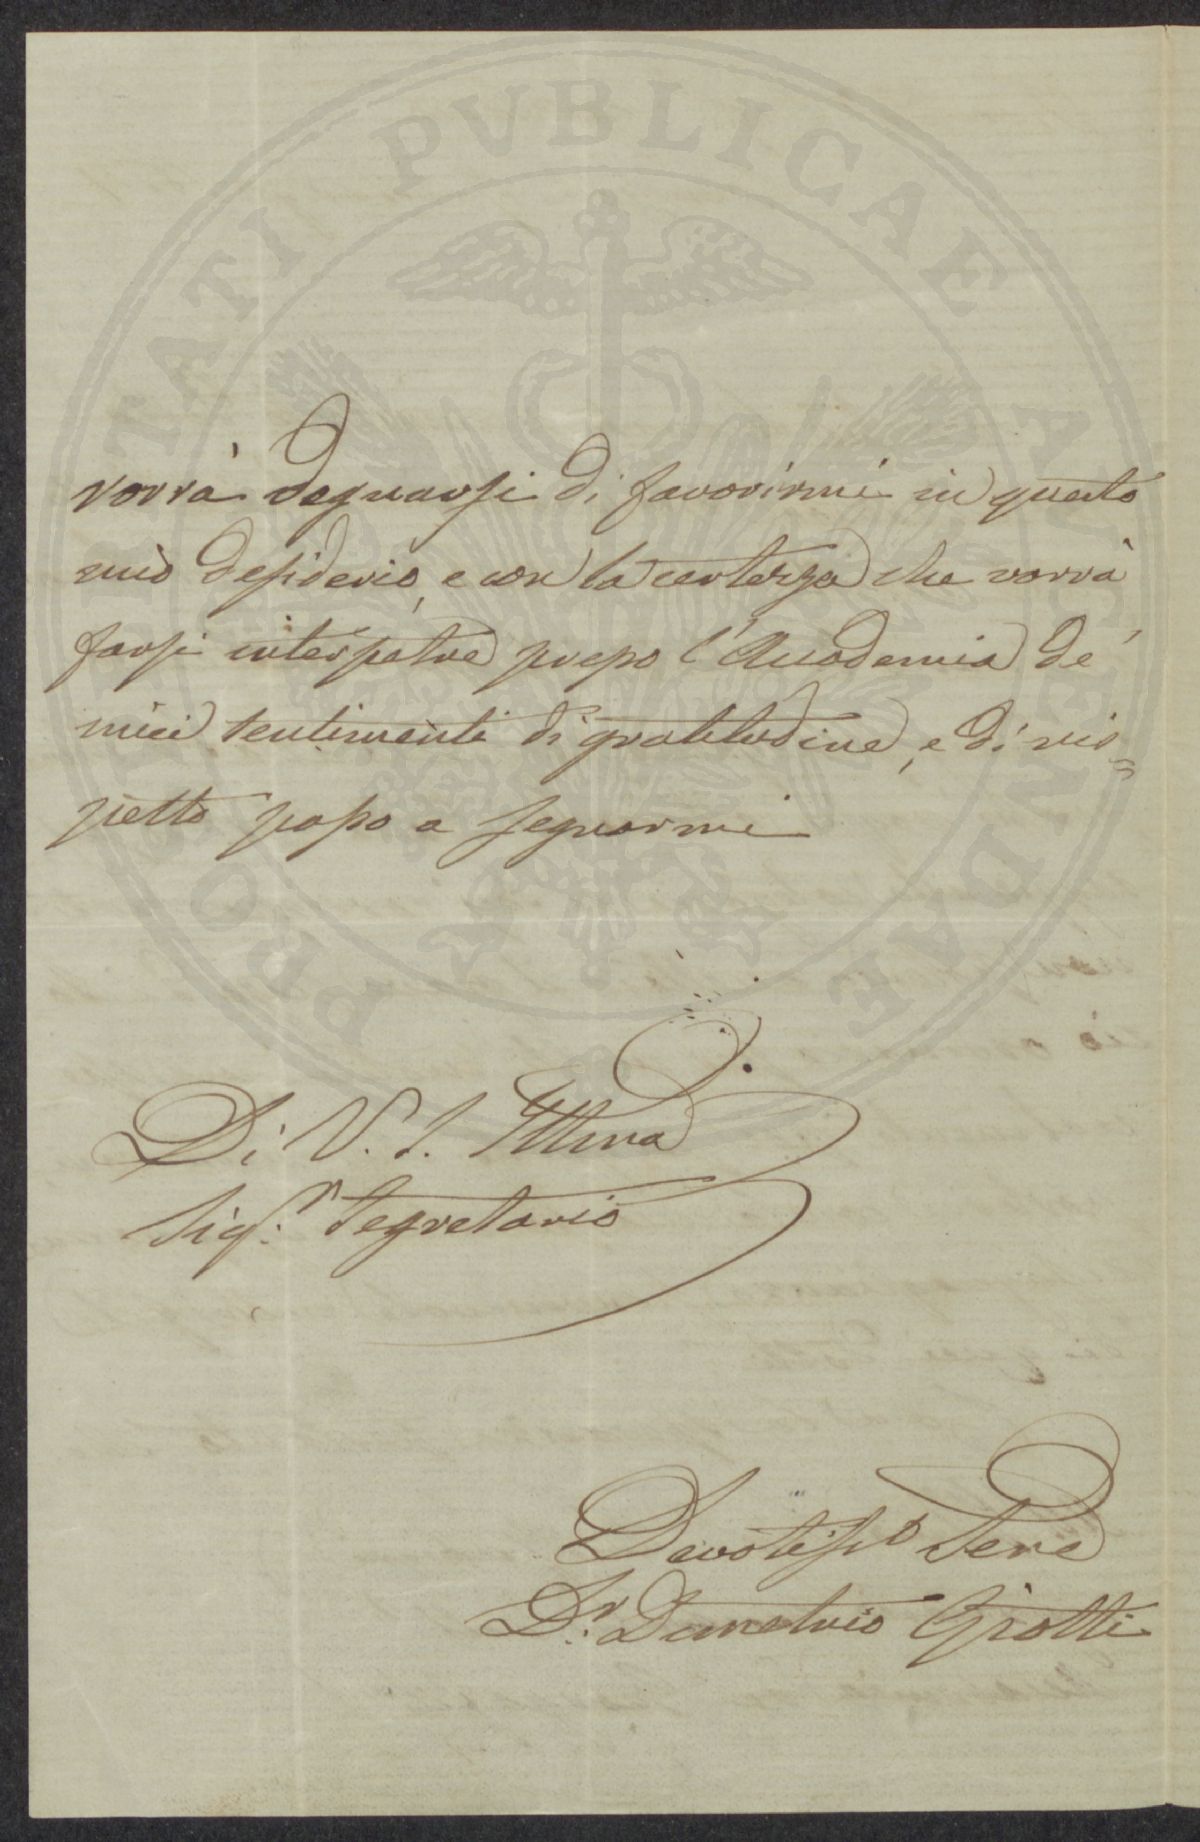 PROSPERITATI PVBLICAE AVGENDAE
vorrà degnarsi di favorirmi in questo
mio desiderio, e con la certezza che vorrà
farsi interpetre presso l'Accademia de'
miei sentimenti di gratitudine, e di ris=
petto passo a segnarmi
Di V. S. Ill.ma
Sig.r Segretario
Devotiss.o Serv.e
D.r Demetrio Grotti